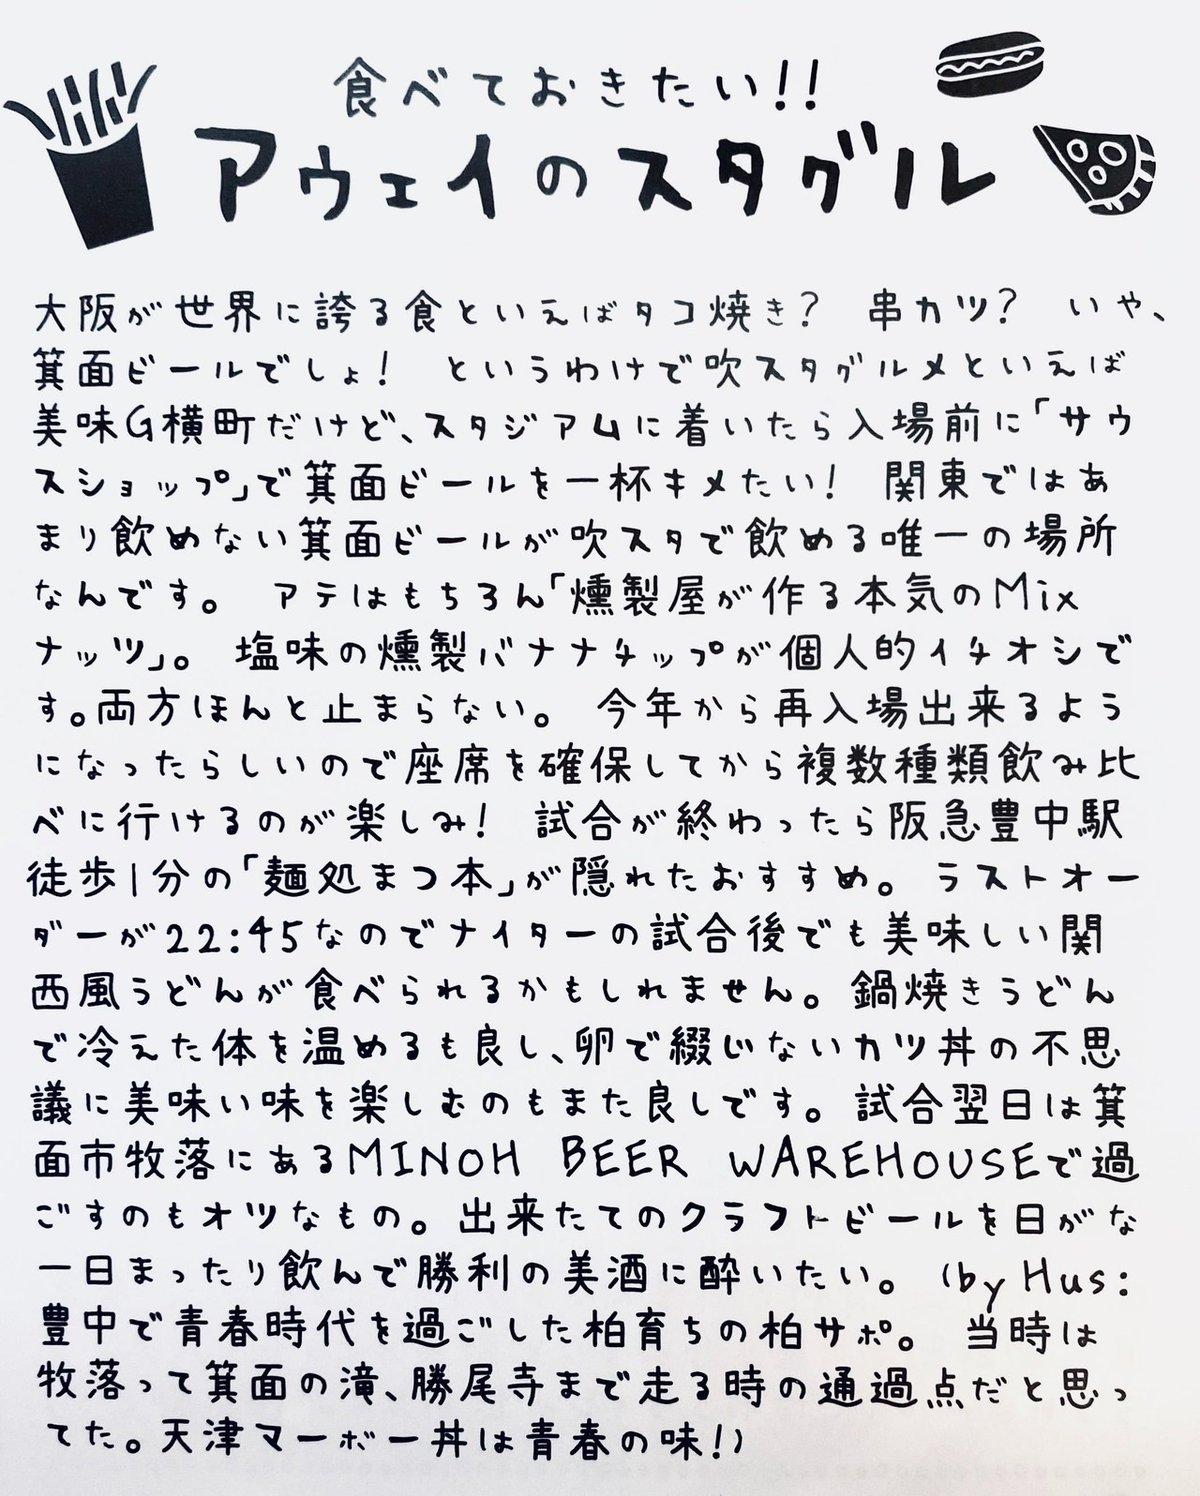 食べておきたい!!
アウェイのスタグル
大阪が世界に誇る食といえばタコ焼き? 串カツ? いや、
箕面ビールでしょ! というわけで吹スタグルメといえば
美味G横町だけど、スタジアムに着いたら入場前に「サウ
スショップ」で箕面ビールを一杯キメたい! 関東ではあ
まり飲めない箕面ビールが吹スタで飲める唯一の場所
なんです。 アテはもちろん「燻製屋が作る本気のMix
ナッツ」。 塩味の燻製バナナチップが個人的イチオシで
す。両方ほんと止まらない。 今年から再入場出来るよう
になったらしいので座席を確保してから複数種類飲み比
べに行けるのが楽しみ! 試合が終わったら阪急豊中駅
徒歩1分の「麺処まつ本」が隠れたおすすめ。 ラストオー
ダーが22:45なのでナイターの試合後でも美味しい関
西風うどんが食べられるかもしれません。鍋焼きうどん
で冷えた体を温めるも良し、卵で綴じないカツ丼の不思
議に美味い味を楽しむのもまた良しです。試合翌日は箕
面市牧落にあるMINOH BEER WAREHOUSEで過
ごすのもオツなもの。出来たてのクラフトビールを日がな
一日まったり飲んで勝利の美酒に酔いたい。 (by Hus:
豊中で青春時代を過ごした柏育ちの柏サポ。 当時は
牧落って箕面の滝、勝尾寺まで走る時の通過点だと思っ
てた。天津マーボー丼は青春の味!)